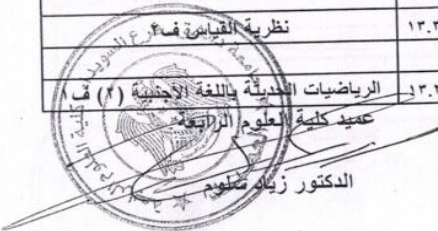 نظرية القياس ف٢ ١٣.٢
الرياضيات الحديثة باللغة الأجنبية (٢) ف١ ١٣.٢
عميد كلية العلوم الرابعة
الدكتور زياد سلوم